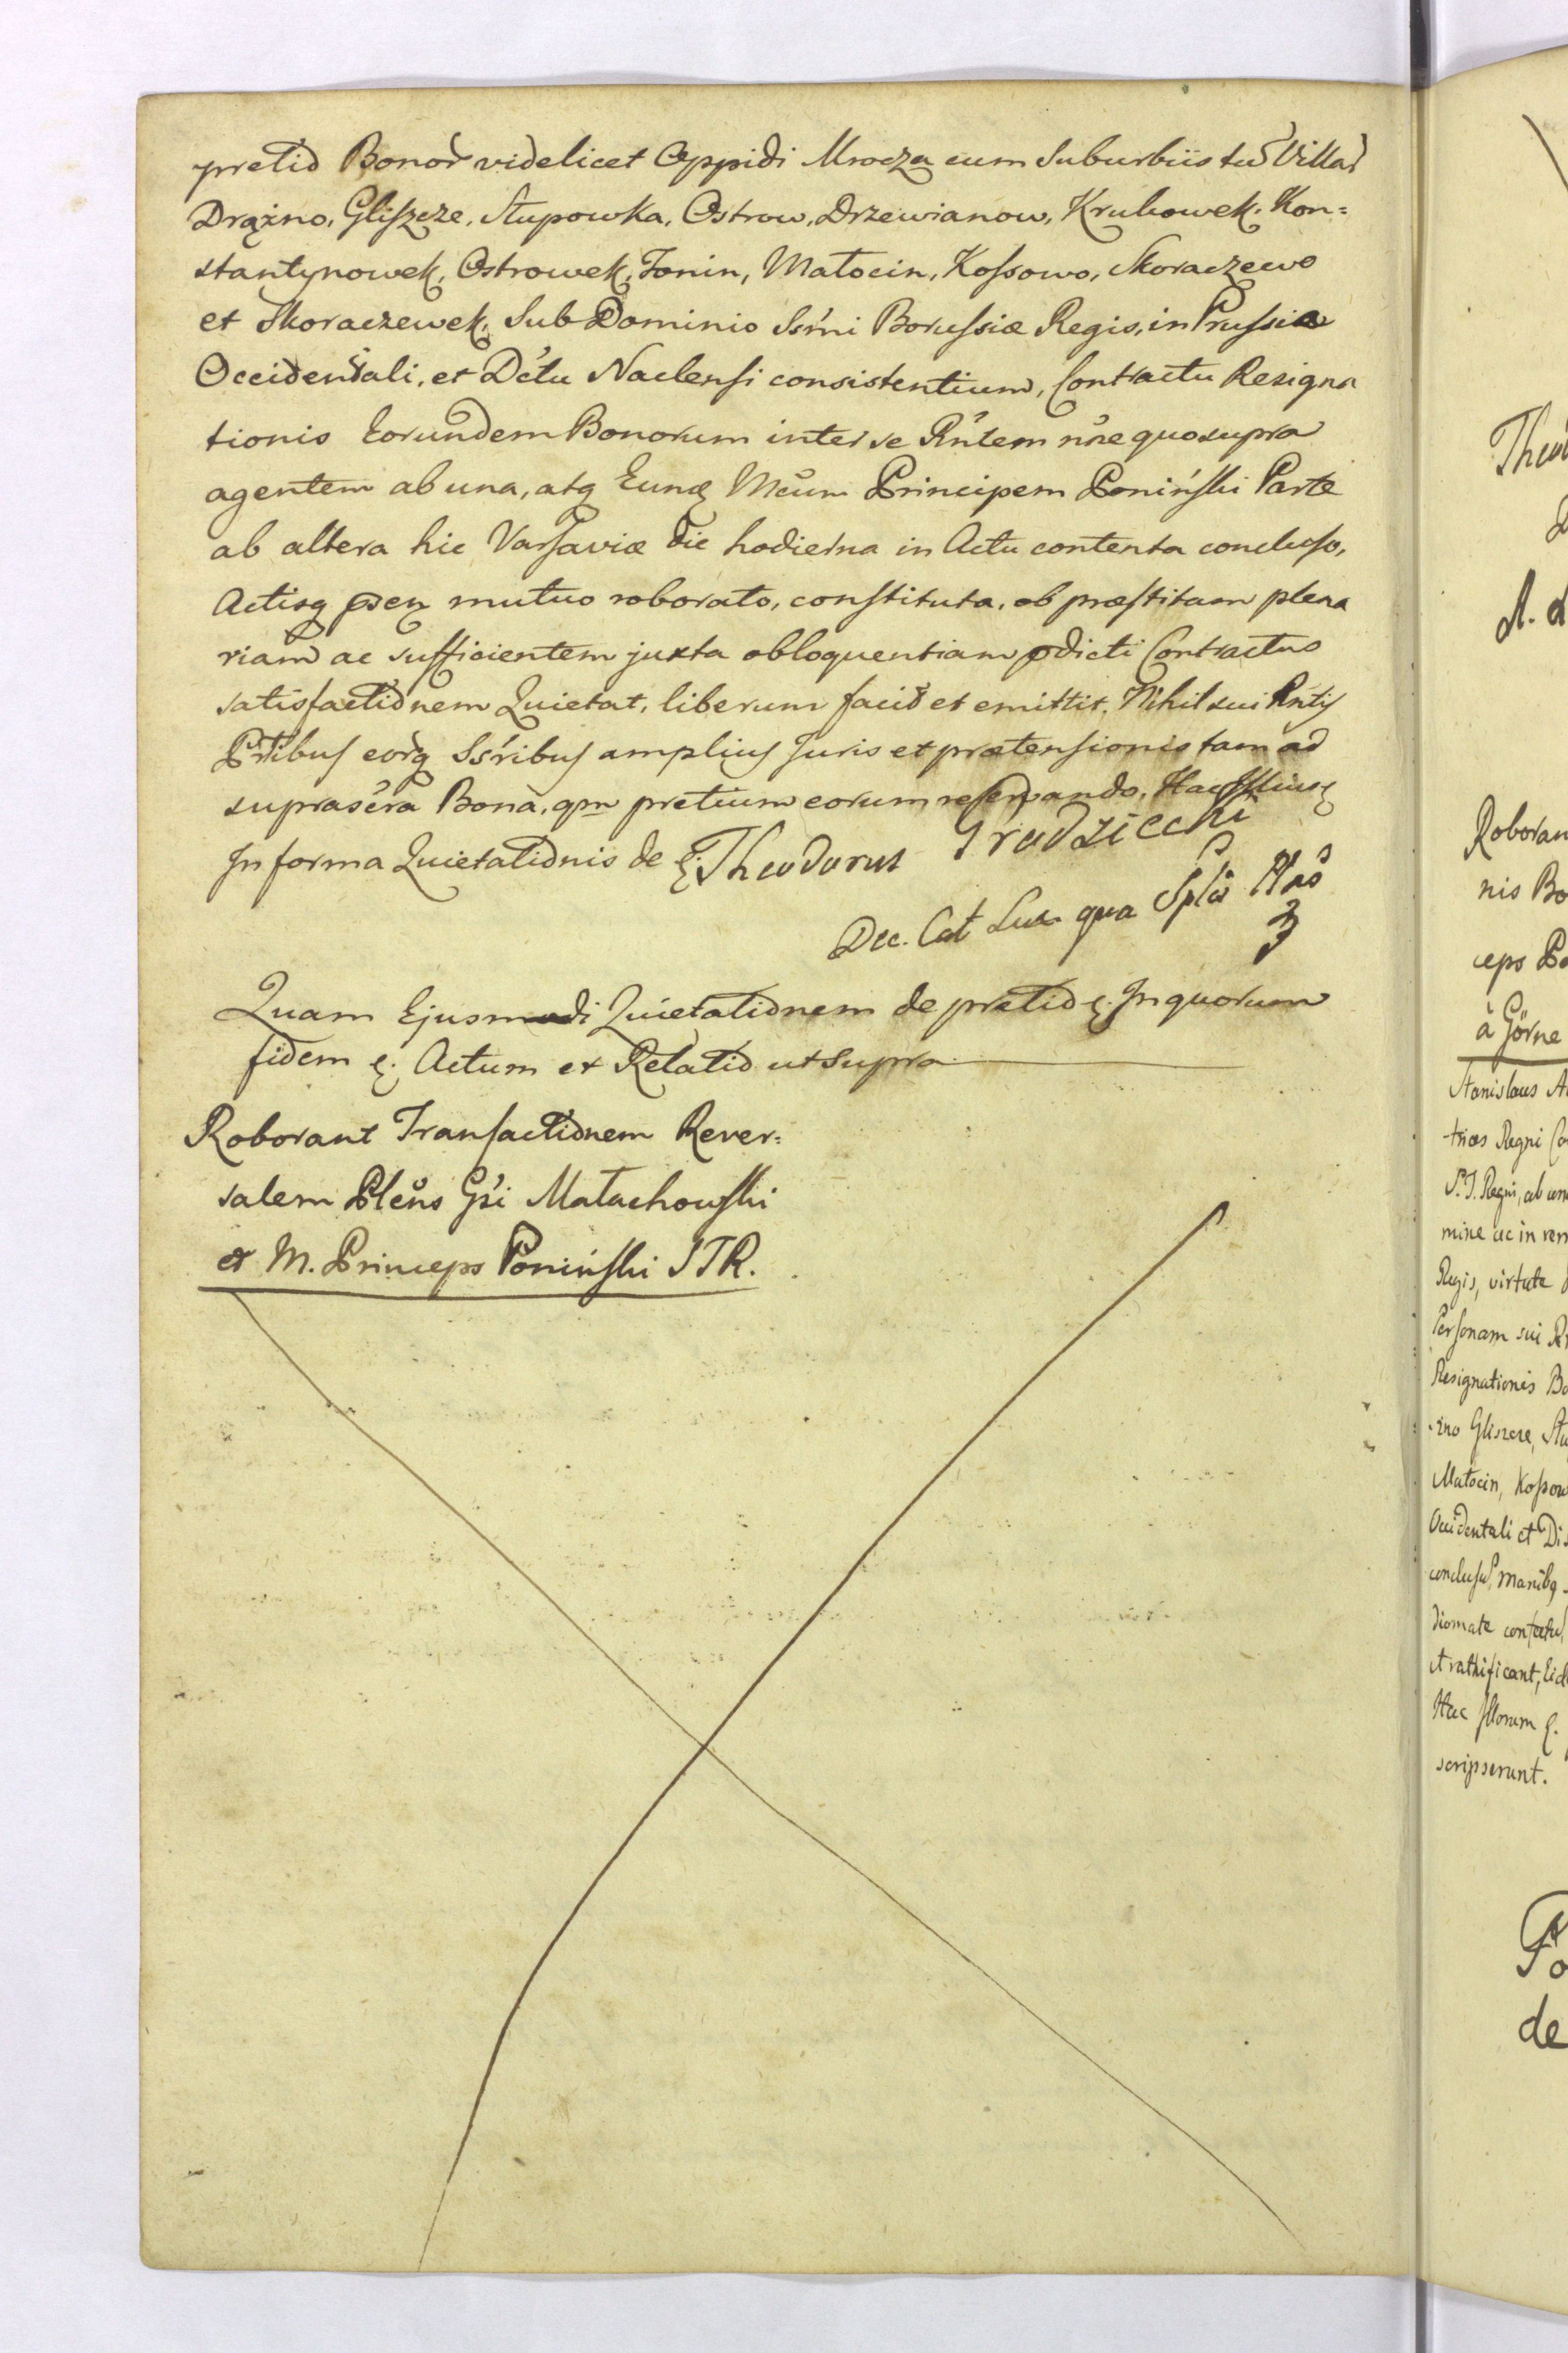 pretio Bonor videlicet Oppidi Mrocza cum Suburbiis tū Villar
Drązno, Gliszcze, Słupowka, Ostrow, Drzewianow, Krukowek, Kon=
stantynowek, Ostrowek, Jonin, Matocin, Kossowo, Skoraczewo
et Skoraczewek, Sub Dominio Ssmi Borussiæ Regis, in Prussia
Occidentali, et Dctu Naclensi consistentium, Contractu Resigna
tionis Eorundem Bonorum inter se Rntem nne quo supra
agentem ab una, atq Eund Mcum Principem Poniński Parte
ab altera hic Varsaviæ die hodierna in Actu contenta concluso,
Actisq psen mutuo roborato, constituta, ob præstitam plena
riam ac sufficientem juxta obloquentiam pdicti Contractus
satisfactionem Quietat, liberum facit et emittit, Nihil sui Rntis
Prtibus eorq Ssribus amplius Juris et prætensionis tam ad
suprascra Bona, qm pretium eorum reservando. Hac Illius
In forma Quietationis de Theodorus Grudziecki
Dec. Cat Luc qua Splis Pls
Quam Ejusmodi Quietationem de pretio In quorum
fidem Actum et Relatio ut supra
Roborant Transactionem Rever=
salem Plens Gsi Małachowski
et M. Princeps Poniński STR.
Roboran
nis Bo
ceps Po
à Görne
Stanislaus
trices Regni
S. J. Regni, ab
mine ac in rem
Regis, virtute
Personam sui
Resignationis Bo
zno Gliszcze,
Matocin,
Occidentali et Dis
conclusu, manibq
diomate
et rathificant,
Hac Illorum
scripserunt.
de